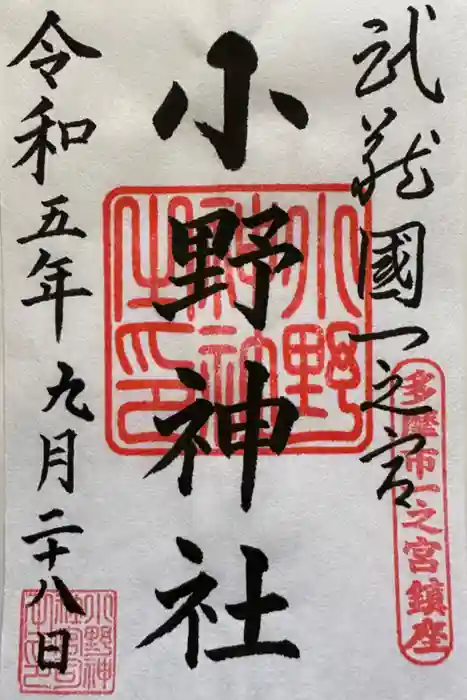 武蔵國一之宮
多摩市一之宮鎮座
小野神社
小野神社之印
令和五年九月二十八日